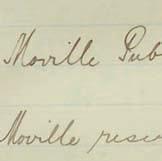 Moville Pub
Moville rese